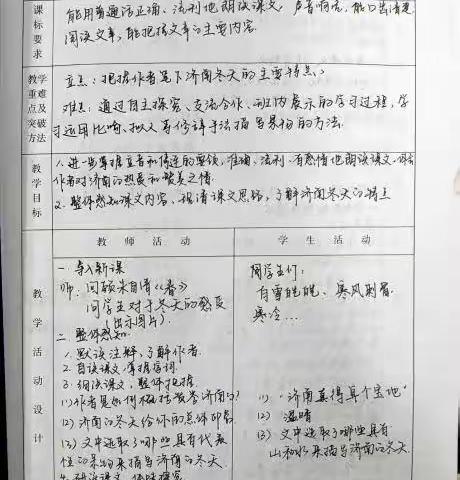 课标要求
能用普通话正确、流利地朗读课文，声音响亮，能口齿清楚
阅读文章，能把握文章的主要内容.
教学重难点及突破方法
重点：把握作者笔下济南冬天的主要特点.
难点：通过自主探究、交流合作、班内展示的学习过程，学
习运用比喻、拟人等修辞手法描写景物的方法.
教学目标
1.进一步掌握重音和停连的要领，准确、流利、有感情地朗读课文.体会
作者对济南的热爱和赞美之情.
2.整体感知课文内容、理清课文思路，了解济南冬天的特点
教师活动
学生活动
教学活动设计
一 导入新课
师：回顾朱自清《春》
问学生对于冬天的感受
（出示图片）.
二.整体感知.
1.默读注解，了解作者.
2.自读课文.掌握字词.
3.细读课文，整体把握.
(1)作者是如何概括赞誉济南的？
(2)济南的冬天给你的总体印象.
(3)文中选取了哪些具有代表
性的景物来描写济南的冬天.
同学生们：
白雪皑皑、寒风刺骨.
寒冷...
(1)“济南真得算个宝地”
(2) 温晴
(3) 文中选取了哪些具有
山和水来描写济南的冬天.